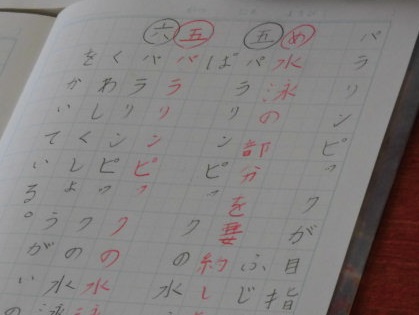 パラリンピックが目指
ふじ
め水泳の部分を要約し
五パラリンピックの水
ば
五パラリンピックの水泳
六パラリンピックの水泳
くわしくしようがい
をかいている。
の